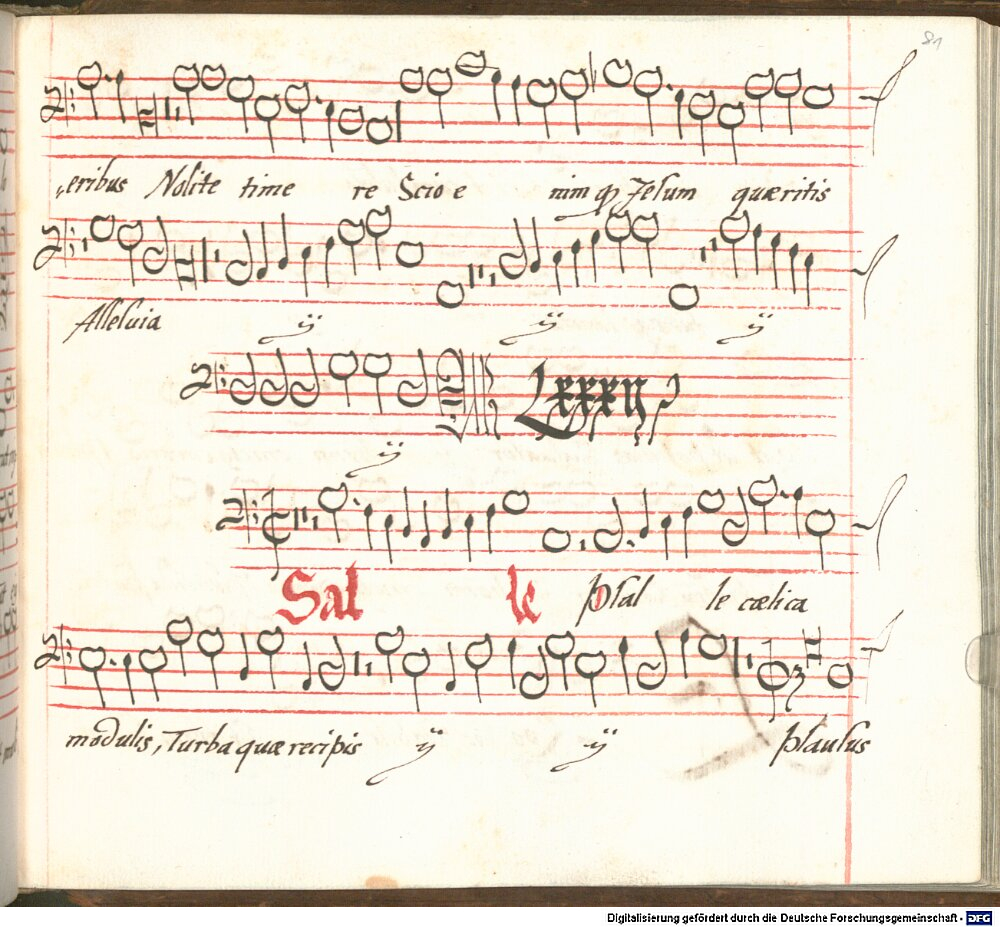 81
eribus Nolite time re Scio e nim Jesum quæritis
Alleluia ij ij ij
Lxxxij
ij
Sal le psal le cælica
modulis, Turba quæ recipis ij ij plausus
Digitalisierung gefördert durch die Deutsche Forschungsgemeinschaft - DFG